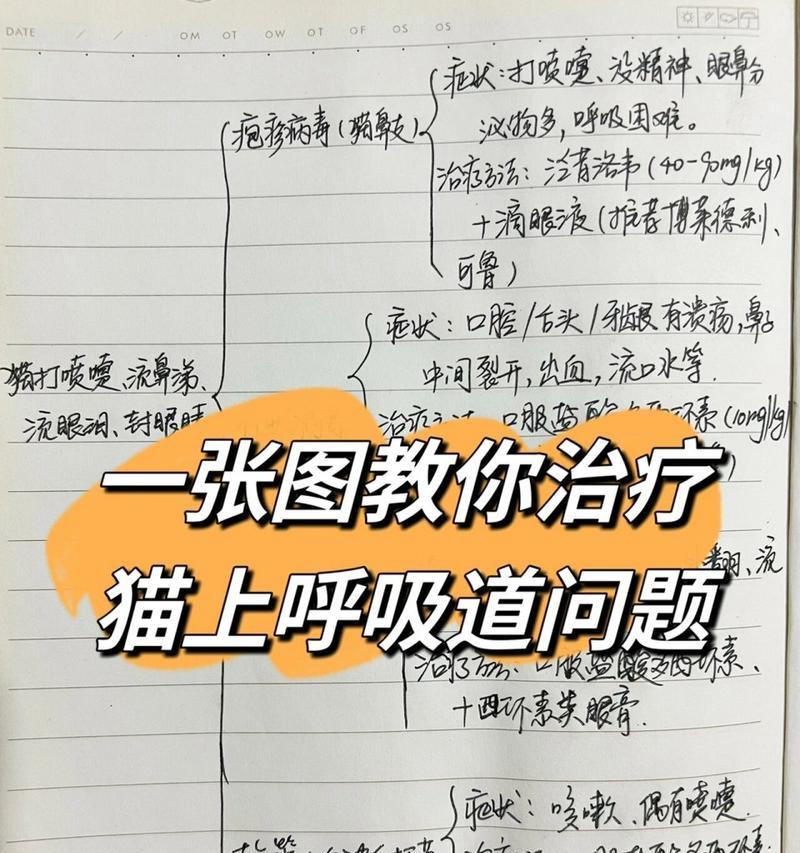 DATE / / OM OT OW OT OF OS OS
症状：打喷嚏、没精神、眼鼻分
疱疹病毒（猫鼻支）
泌物多，呼吸困难。
治疗方法：泛昔洛韦（40-90mg/kg）
+滴眼液（推荐博莱德利、
可鲁）
症状：口腔/舌头/牙龈有溃疡，鼻子
猫打喷嚏、流鼻涕、
中间裂开，出血，流口水等.
流眼泪、封眼睛
治疗方法：口服盐酸多西环素（10mg/kg）
一张图教你治疗
猫上呼吸道问题
流
治疗方法：口服盐酸多西环素、
+四环素类眼膏.
症状：咳嗽、偶有喷嚏.